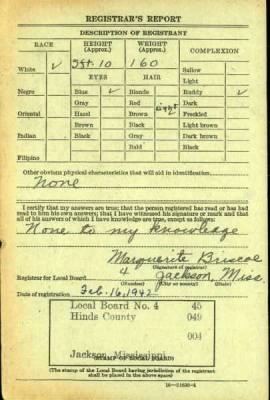 REGISTRAR'S REPORT
DESCRIPTION OF REGISTRANT
RACE HEIGHT (Approx.) WEIGHT (Approx.) COMPLEXION
White ✓ 5ft. 10 160 Sallow
EYES HAIR Light
Negro Blue ✓ Blonde Ruddy ✓
Gray Red Dark
Oriental Hazel Brown Freckled
Indian Brown Black Light brown
Black Gray Dark brown
Filipino Bald Black
Other obvious physical characteristics that will aid in identification
None
I certify that my answers are true; that the person registered has read or has had
read to him his own answers; that I have witnessed his signature or mark and that
all of his answers of which I have knowledge are true, except as follows:
None to my knowledge
Marguerite Briscoe
(Signature of registrar)
Registrar for Local Board 4 Jackson, Miss
(Number) (City or county) (State)
Date of registration Feb. 16, 1942
Local Board No. 4 45
Hinds County 049
004
Jackson, Mississippi
(STAMP OF LOCAL BOARD)
(The stamp of the Local Board having jurisdiction of the registrant
shall be placed in the above space)
16—21630-4